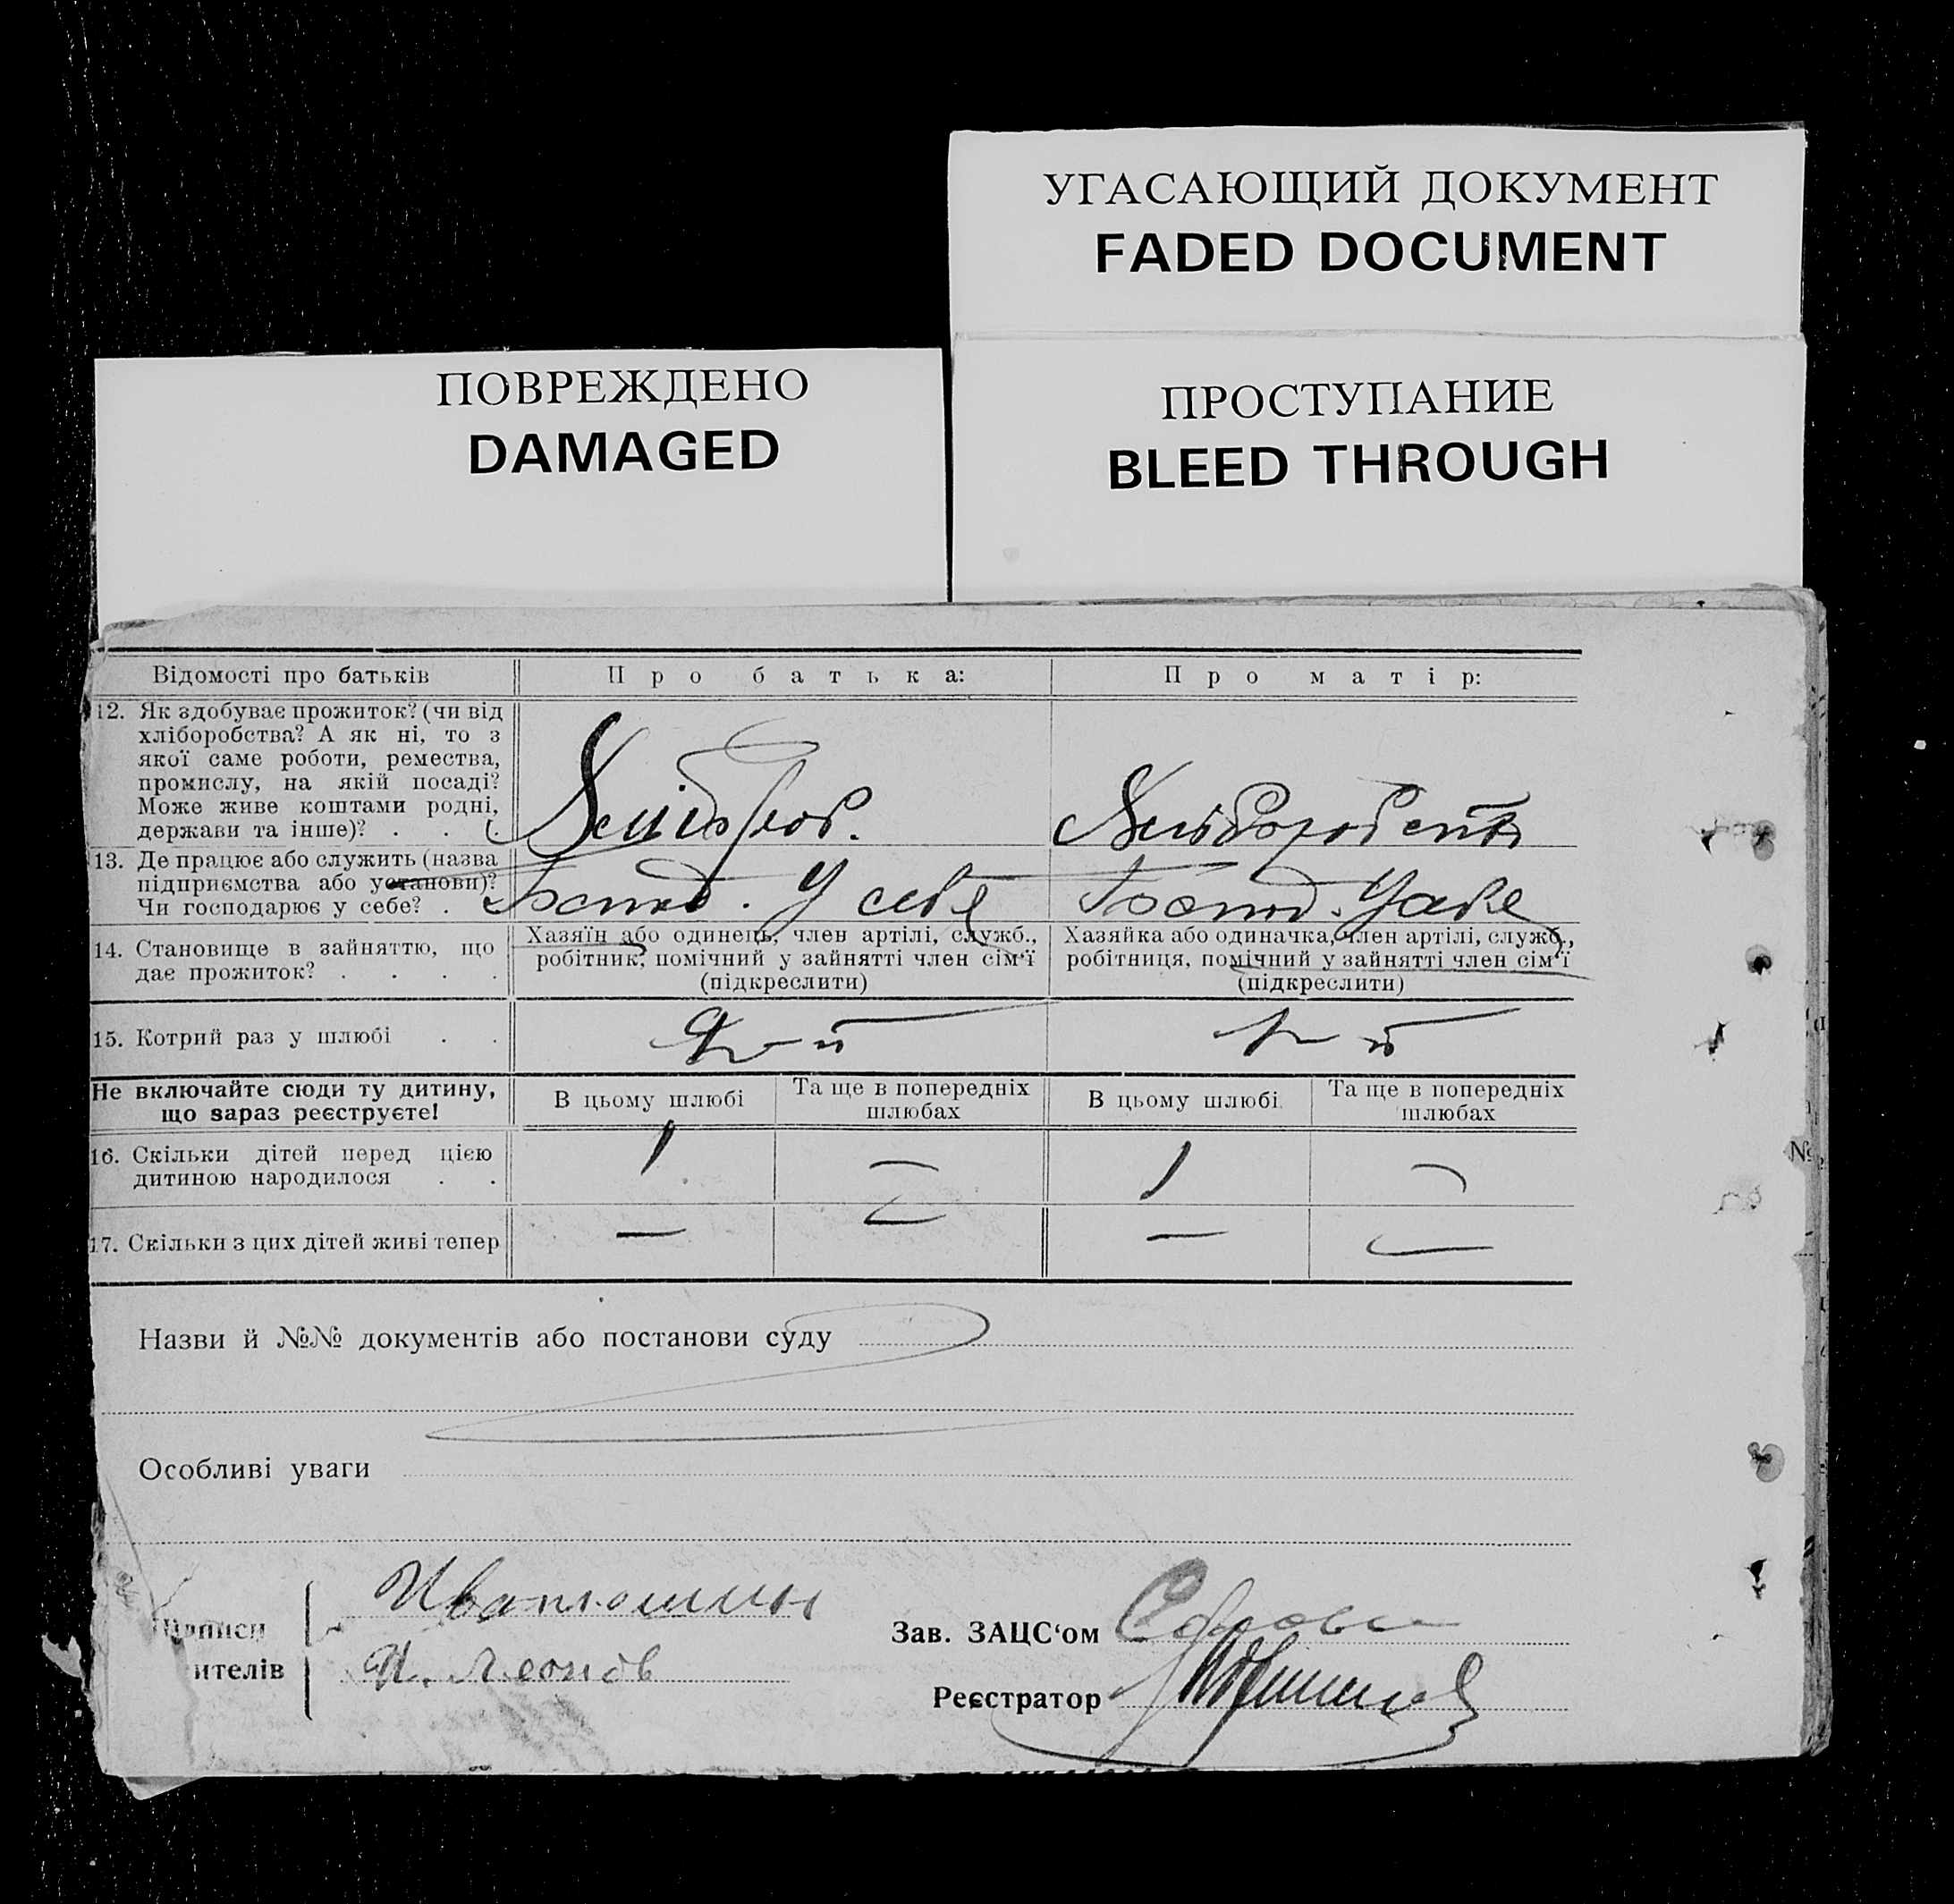 УГАСАЮЩИЙ ДОКУМЕНТ
FADED DOCUMENT
ПОВРЕЖДЕНО
DAMAGED
ПРОСТУПАНИЕ
BLEED THROUGH
Відомості про батьків
Про батька:
Про матір:
12. Як здобуває прожиток? (чи від
хліборобства? А як ні, то з
якої саме роботи, ремества,
промислу, на якій посаді?
Може живе коштами родні,
держави та інше)? . . .
Хлібороб.
13. Де працює або служить (назва
підприємства або установи)?
Чи господарює у себе? .
Господ. У себе
Господ. У себе
14. Становище в зайняттю, що
дає прожиток? . . . .
Хазяїн або одинець, член артілі, служб.,
робітник, помічний у зайнятті член сім'ї
(підкреслити)
Хазяйка або одиначка, член артілі, служб.,
робітниця, помічний у зайнятті член сім'ї
(підкреслити)
15. Котрий раз у шлюбі . .
Не включайте сюди ту дитину,
що зараз реєструєте!
В цьому шлюбі
Та ще в попередніх
шлюбах
В цьому шлюбі
Та ще в попередніх
шлюбах
16. Скільки дітей перед цією
дитиною народилося . .
1
—
1
—
17. Скільки з цих дітей живі тепер
—
—
—
—
Назви й №№ документів або постанови суду
Особливі уваги
Підписи
ителів
И. Леонов
Зав. ЗАЦС‘ом
Реєстратор
№